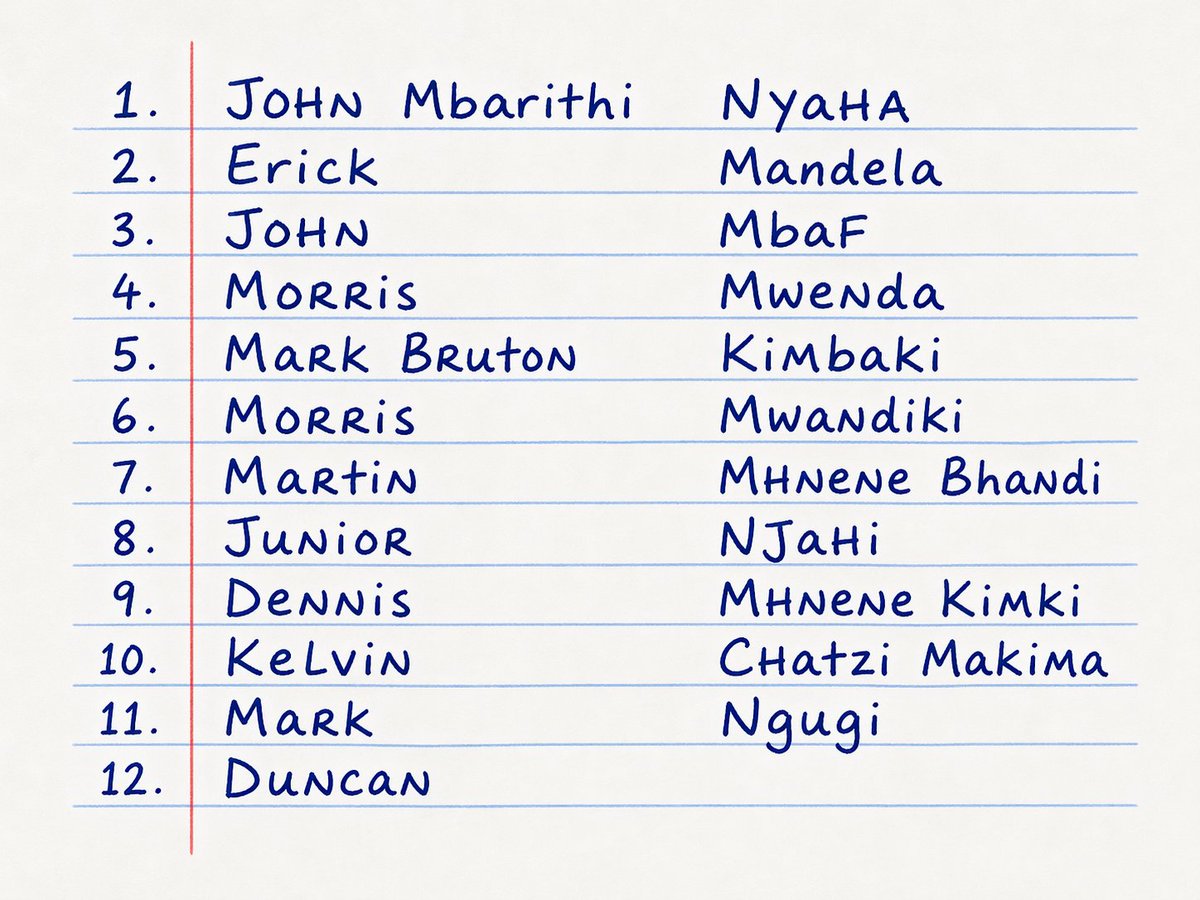 1. JOHN Mbarithi NyaHA
2. Erick Mandela
3. JOHN MbaF
4. MORRiS Mwenda
5. MaRk BRutoN Kimbaki
6. MORRiS MwaNdiki
7. MaRtiN MHNeNe BhaNdi
8. JuNioR NJaHi
9. DeNNis MHNeNe Kimki
10. KeLviN CHatzi Makima
11. MaRk Ngugi
12. DuNcaN